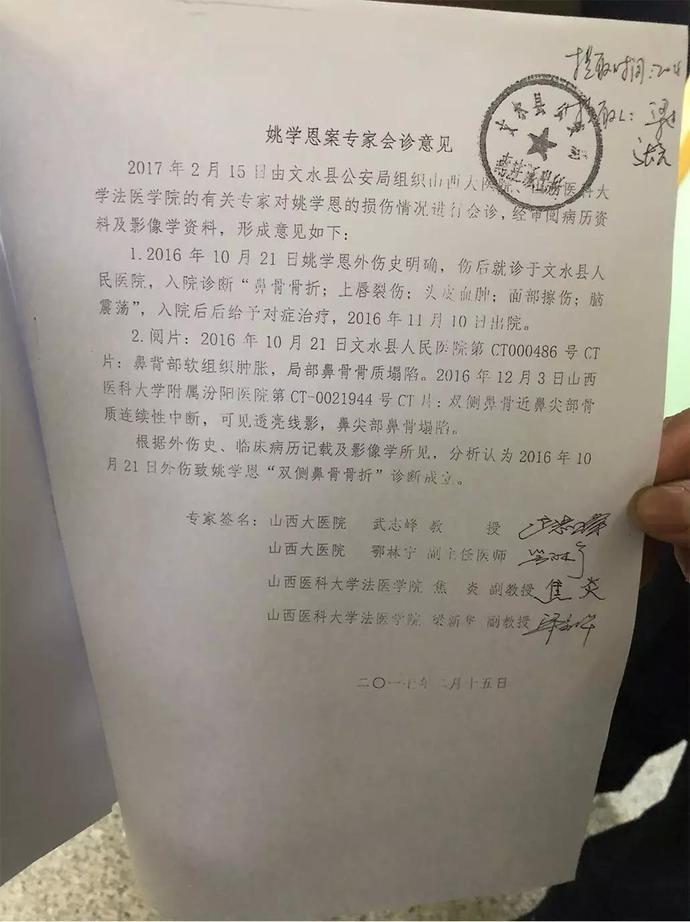 提取时间:201
提取人:
姚学恩案专家会诊意见
2017年2月15日由文水县公安局组织山西大医院、山西医科大
学法医学院的有关专家对姚学恩的损伤情况进行会诊,经审阅病历资
料及影像学资料,形成意见如下:
1.2016年10月21日姚学恩外伤史明确,伤后就诊于文水县人
民医院,入院诊断“鼻骨骨折;上唇裂伤;头皮血肿;面部擦伤;脑
震荡”,入院后后给予对症治疗,2016年11月10日出院。
2.阅片:2016年10月21日文水县人民医院第CT000486号CT
片:鼻背部软组织肿胀,局部鼻骨骨质塌陷。2016年12月3日山西
医科大学附属汾阳医院第CT-0021944号CT片:双侧鼻骨近鼻尖部骨
质连续性中断,可见透亮线影,鼻尖部鼻骨塌陷。
根据外伤史、临床病历记载及影像学所见,分析认为2016年10
月21日外伤致姚学恩“双侧鼻骨骨折”诊断成立。
专家签名:山西大医院 武志峰 教 授
山西大医院 鄂林宁 副主任医师
山西医科大学法医学院 焦 炎 副教授 焦炎
山西医科大学法医学院 梁新华 副教授
二〇一七年二月十五日